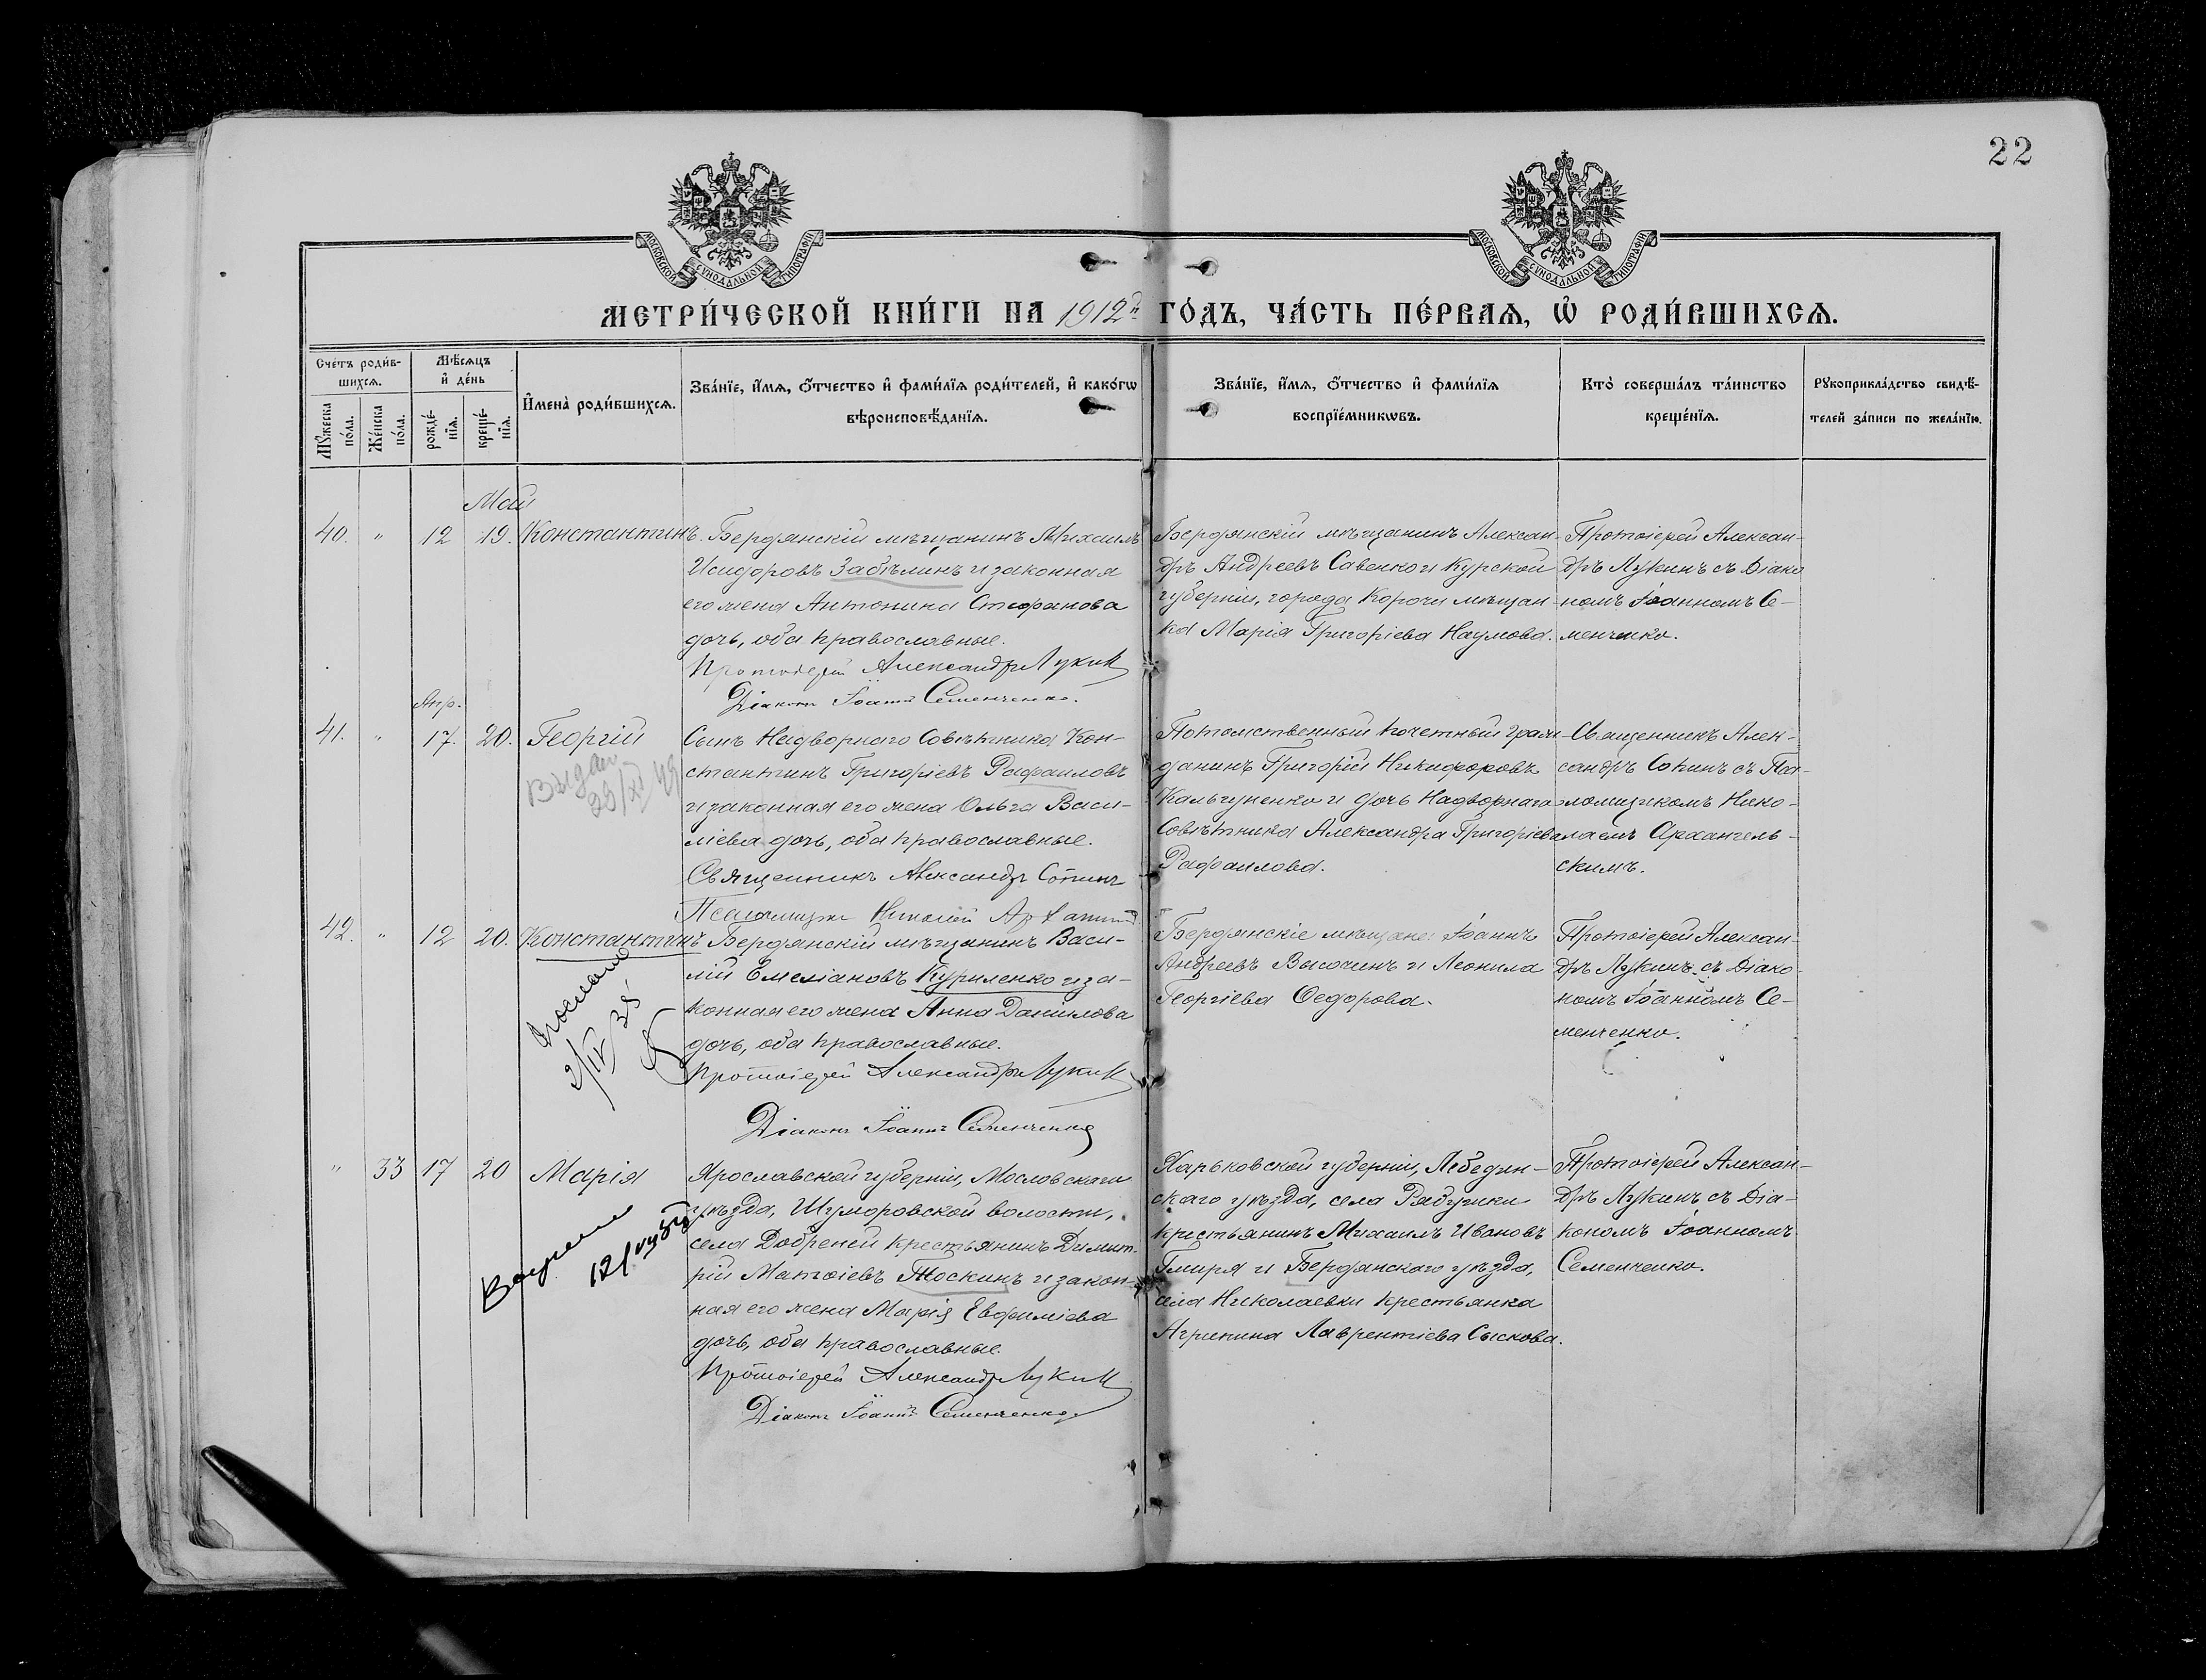 22
МОСКОВСКОЙ СѴНОДАЛЬНОЙ ТИПОГРАФІИ
МОСКОВСКОЙ СѴНОДАЛЬНОЙ ТИПОГРАФІИ
МЕТРИ́ЧЕСКОЙ КНИ́ГИ НА 1912й ГО́ДЪ, ЧА́СТЬ ПЕ́РВАЯ, Ѡ РОДИ́ВШИХСЯ.
Сче́тъ роди́в-
шихся.
Мꙋ́жеска по́ла.
Же́нска по́ла.
Мѣ́сяцъ и҆ де́нь
рожде́-нїя.
креще́-нїя.
И҆мена̀ роди́вшихся.
Зва́нїе, и҆́мя, ѻ҆́тчество и҆ фами́лїя роди́телей, и҆ како́гѡ
вѣроисповѣ́данїя.
Зва́нїе, и҆́мя, ѻ҆́тчество и҆ фами́лїя
воспрїе́мникѡвъ.
Кто̀ соверша́лъ та́инство
креще́нїя.
Рꙋкоприкла́дство свидѣ́-
телей за́писи по жела́нїю.
Май
40. " 12 19. Константинъ.
Бердянскій мѣщанинъ Михаилъ
Исидоровъ Забѣлинъ и законная
его жена Антонина Стефанова
дочь, оба православные.
Протоіерей Александръ Лукин
Діаконъ Іоаннъ Семенченко.
Бердянскій мѣщанинъ Алексан-
дръ Андреевъ Савенко и Курской
губерніи, города Корочи мѣщан-
ка Марія Григоріева Наумова.
Протоіерей Алексан-
дръ Лукинъ съ Діако
номъ Іоанномъ Се-
менченко.
Апр.
41. " 17. 20. Георгій
Выдан
Сынъ Надворнаго Совѣтника Кон-
стантинъ Григоріевъ Рафаиловъ
и законная его жена Ольга Васи-
ліева дочь, оба православные.
Священникъ Александръ Сопинъ
Псаломщикъ Николай
Потомственный почетный граж-
данинъ Григорій Никифоровъ
Кальчуненко и дочь Надворнаго
Совѣтника Александра Григоріева
Рафаилова.
Священникъ Алек-
сандръ Сопинъ съ Пса-
ломщикомъ Нико-
лаемъ Архангель-
скимъ.
42. " 12 20. Константинъ
2/IV 35
Бердянскій мѣщанинъ Васи-
лій Емеліановъ Куриленко и за-
конная его жена Анна Данилова
дочь, оба православные.
Протоіерей Александръ Лукин
Діаконъ Іоаннъ Семенченко
Бердянскіе мѣщане: Іоаннъ
Андреевъ Высочинъ и Леонила
Георгіева Федорова.
Протоіерей Алексан-
дръ Лукинъ съ Діако-
номъ Іоанномъ Се-
менченко.
" 33 17 20 Марія
Ярославской губерніи, Мологскаго
уѣзда, Шуморовской волости,
села Добреней крестьянинъ Димит-
рій Матѳіевъ Тоскинъ и закон-
ная его жена Марія Евфиміева
дочь, оба православные.
Протоіерей Александръ Лукин
Діаконъ Іоаннъ Семенченко
Харьковской губерніи, Лебедин-
скаго уѣзда, села Рябушки
крестьянинъ Михаилъ Ивановъ
Гмиря и Бердянскаго уѣзда,
села Николаевки крестьянка
Агрипина Лаврентіева Сыскова.
Протоіерей Алексан-
дръ Лукинъ съ Діа-
кономъ Іоанномъ
Семенченко.